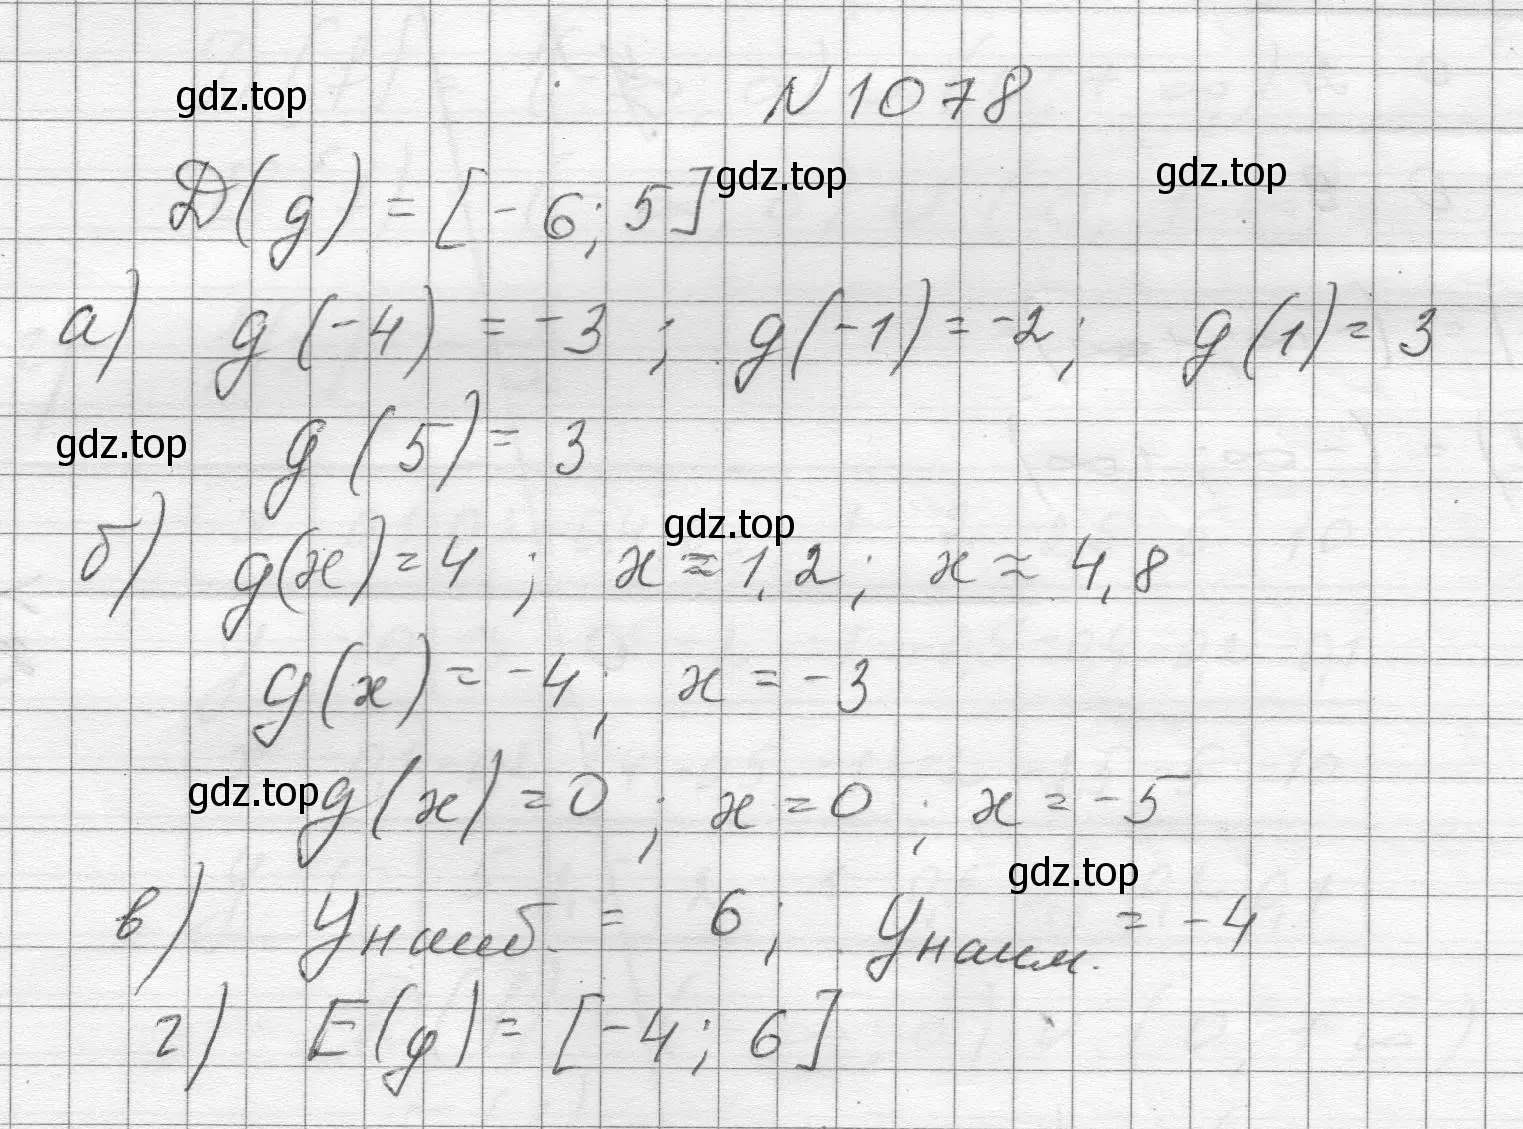 gdz.top N 1078
D(g) = [-6; 5] gdz.top gdz.top
а) g(-4) = -3 ; g(-1) = -2; g(1) = 3
gdz.top g(5) = 3
gdz.top
б) g(x) = 4 ; x ≈ 1,2 ; x ≈ 4,8
g(x) = -4 ; x = -3
gdz.top g(x) = 0 ; x = 0 ; x = -5
gdz.top
в) Унаиб. = 6 ; Унаим. = -4
г) E(g) = [-4 ; 6]